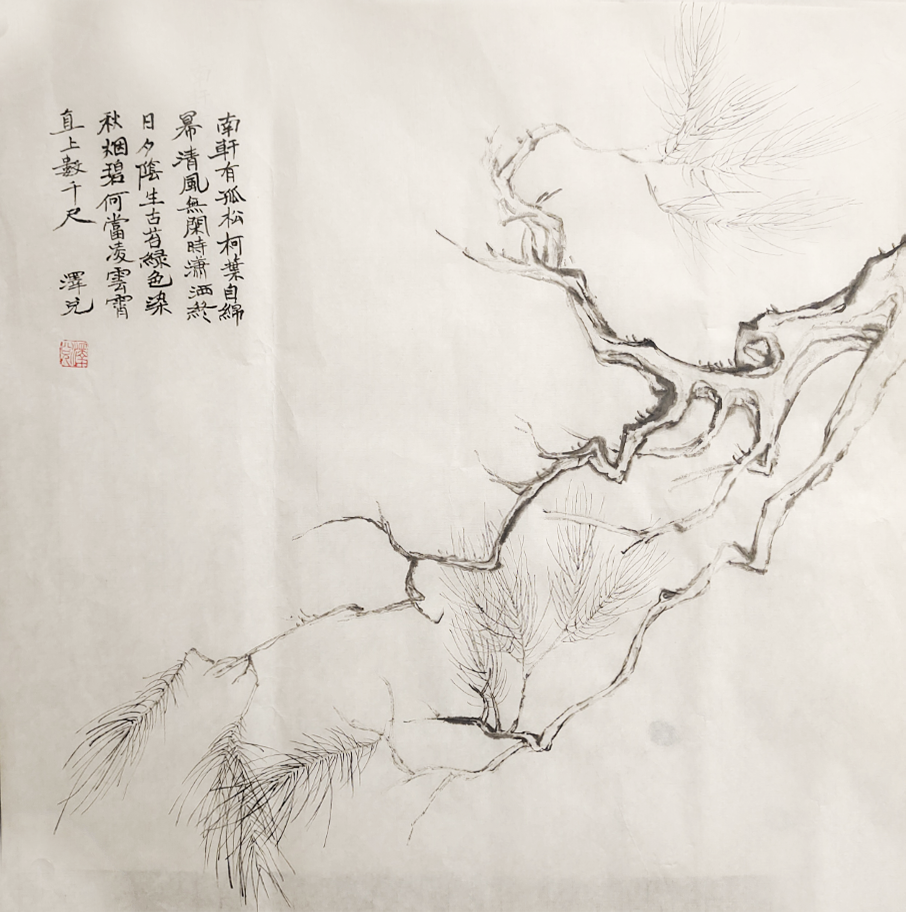 南軒有孤松柯葉自綿
幂清風無閑時瀟洒終
日夕陰生古苔綠色染
秋烟碧何當凌雲霄
直上數千尺 澤